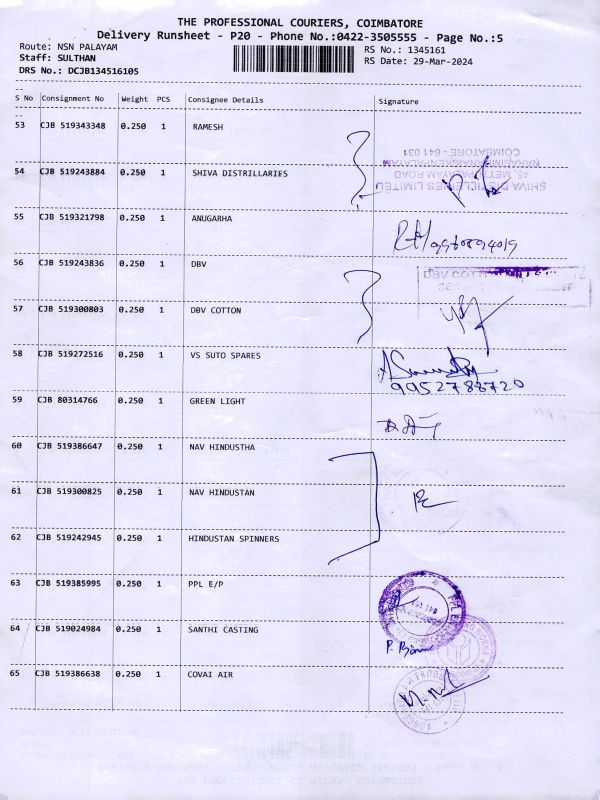 THE PROFESSIONAL COURIERS, COIMBATORE
Delivery Runsheet - P20 - Phone No.:0422-3505555 - Page No.:5
Route: NSN PALAYAM RS No.: 1345161
Staff: SULTHAN RS Date: 29-Mar-2024
DRS No.: DCJB134516105
S No Consignment No Weight PCS Consignee Details Signature
53 CJB 519343348 0.250 1 RAMESH
COIMBATORE - 641 031
NARASIMHANAICKENPALAYAM
54 CJB 519243884 0.250 1 SHIVA DISTRILLARIES
45, METTUPALAYAM ROAD
SHIVA DISTILLERIES LIMITED
55 CJB 519321798 0.250 1 ANUGARHA
56 CJB 519243836 0.250 1 DBV
DBV COT
57 CJB 519300803 0.250 1 DBV COTTON
58 CJB 519272516 0.250 1 VS SUTO SPARES
9952788720
59 CJB 80314766 0.250 1 GREEN LIGHT
60 CJB 519386647 0.250 1 NAV HINDUSTHA
61 CJB 519300825 0.250 1 NAV HINDUSTAN
62 CJB 519242945 0.250 1 HINDUSTAN SPINNERS
63 CJB 519385995 0.250 1 PPL E/P
64 CJB 519024984 0.250 1 SANTHI CASTING
65 CJB 519386638 0.250 1 COVAI AIR